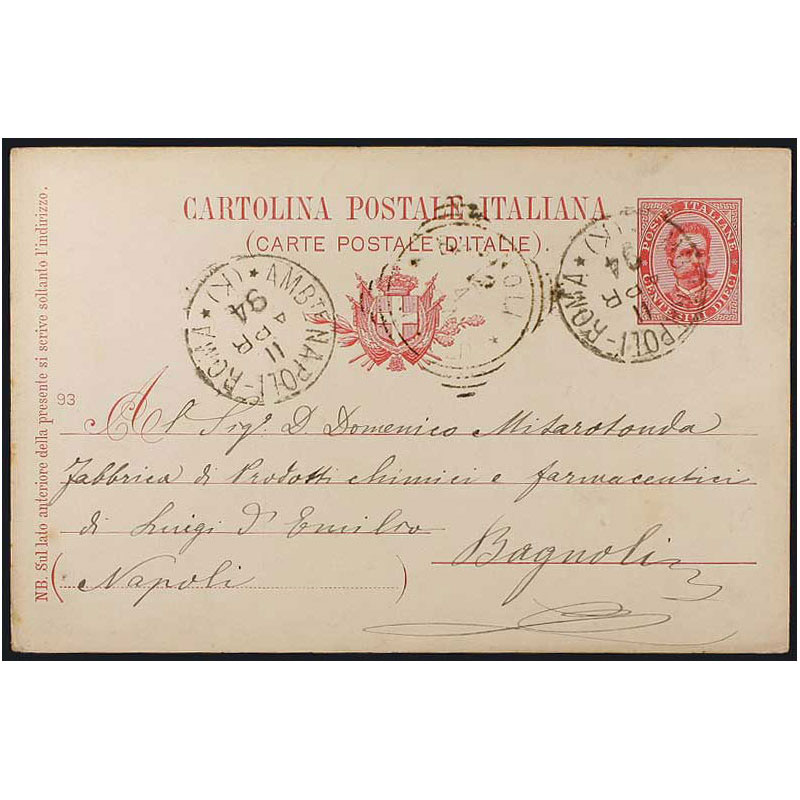 CARTOLINA POSTALE ITALIANA
(CARTE POSTALE D'ITALIE)
POSTE ITALIANE
CENTESIMI DIECI
AMB.E NAPOLI-ROMA * (K) *
11 APR 94
POLI-ROMA * (K)
11 APR 94
93
Al Sigr. D. Domenico Mitarotonda
Fabbrica di Prodotti chimici e farmaceutici
di Luigi d'Emilio
Bagnoli
(Napoli)
NB. Sul lato anteriore della presente si scrive soltanto l'indirizzo.